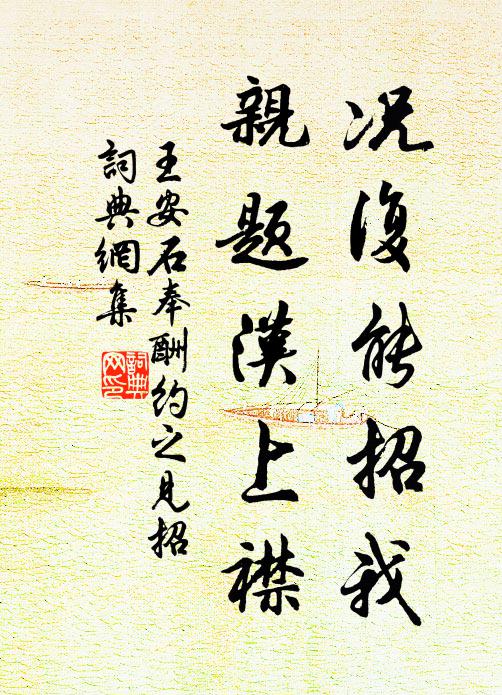 况復能招我
親題漢上襟
王安石奉酬約之見招
詞典網集
詞典网印